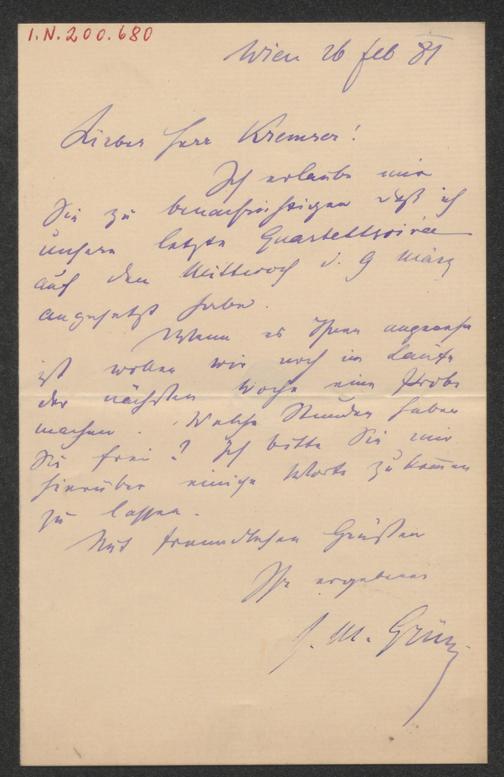 I.N. 200.680
Wien 26 feb 81
Lieber Herr Kremser!
Ich erlaube mir
Sie zu benachrichtigen daß ich
unsere letzte Quartettsoirée
auf den Mittwoch d. 9 März
angesetzt habe.
Wenn es Ihnen angenehm
ist wollen wir noch im Laufe
der nächsten Woche eine Probe
machen. Welche Stunden haben
Sie frei? Ich bitte Sie mir
hierüber einige Worte zukommen
zu lassen.
Mit freundlichen Grüßen
Ihr ergebener
J. M. Grün